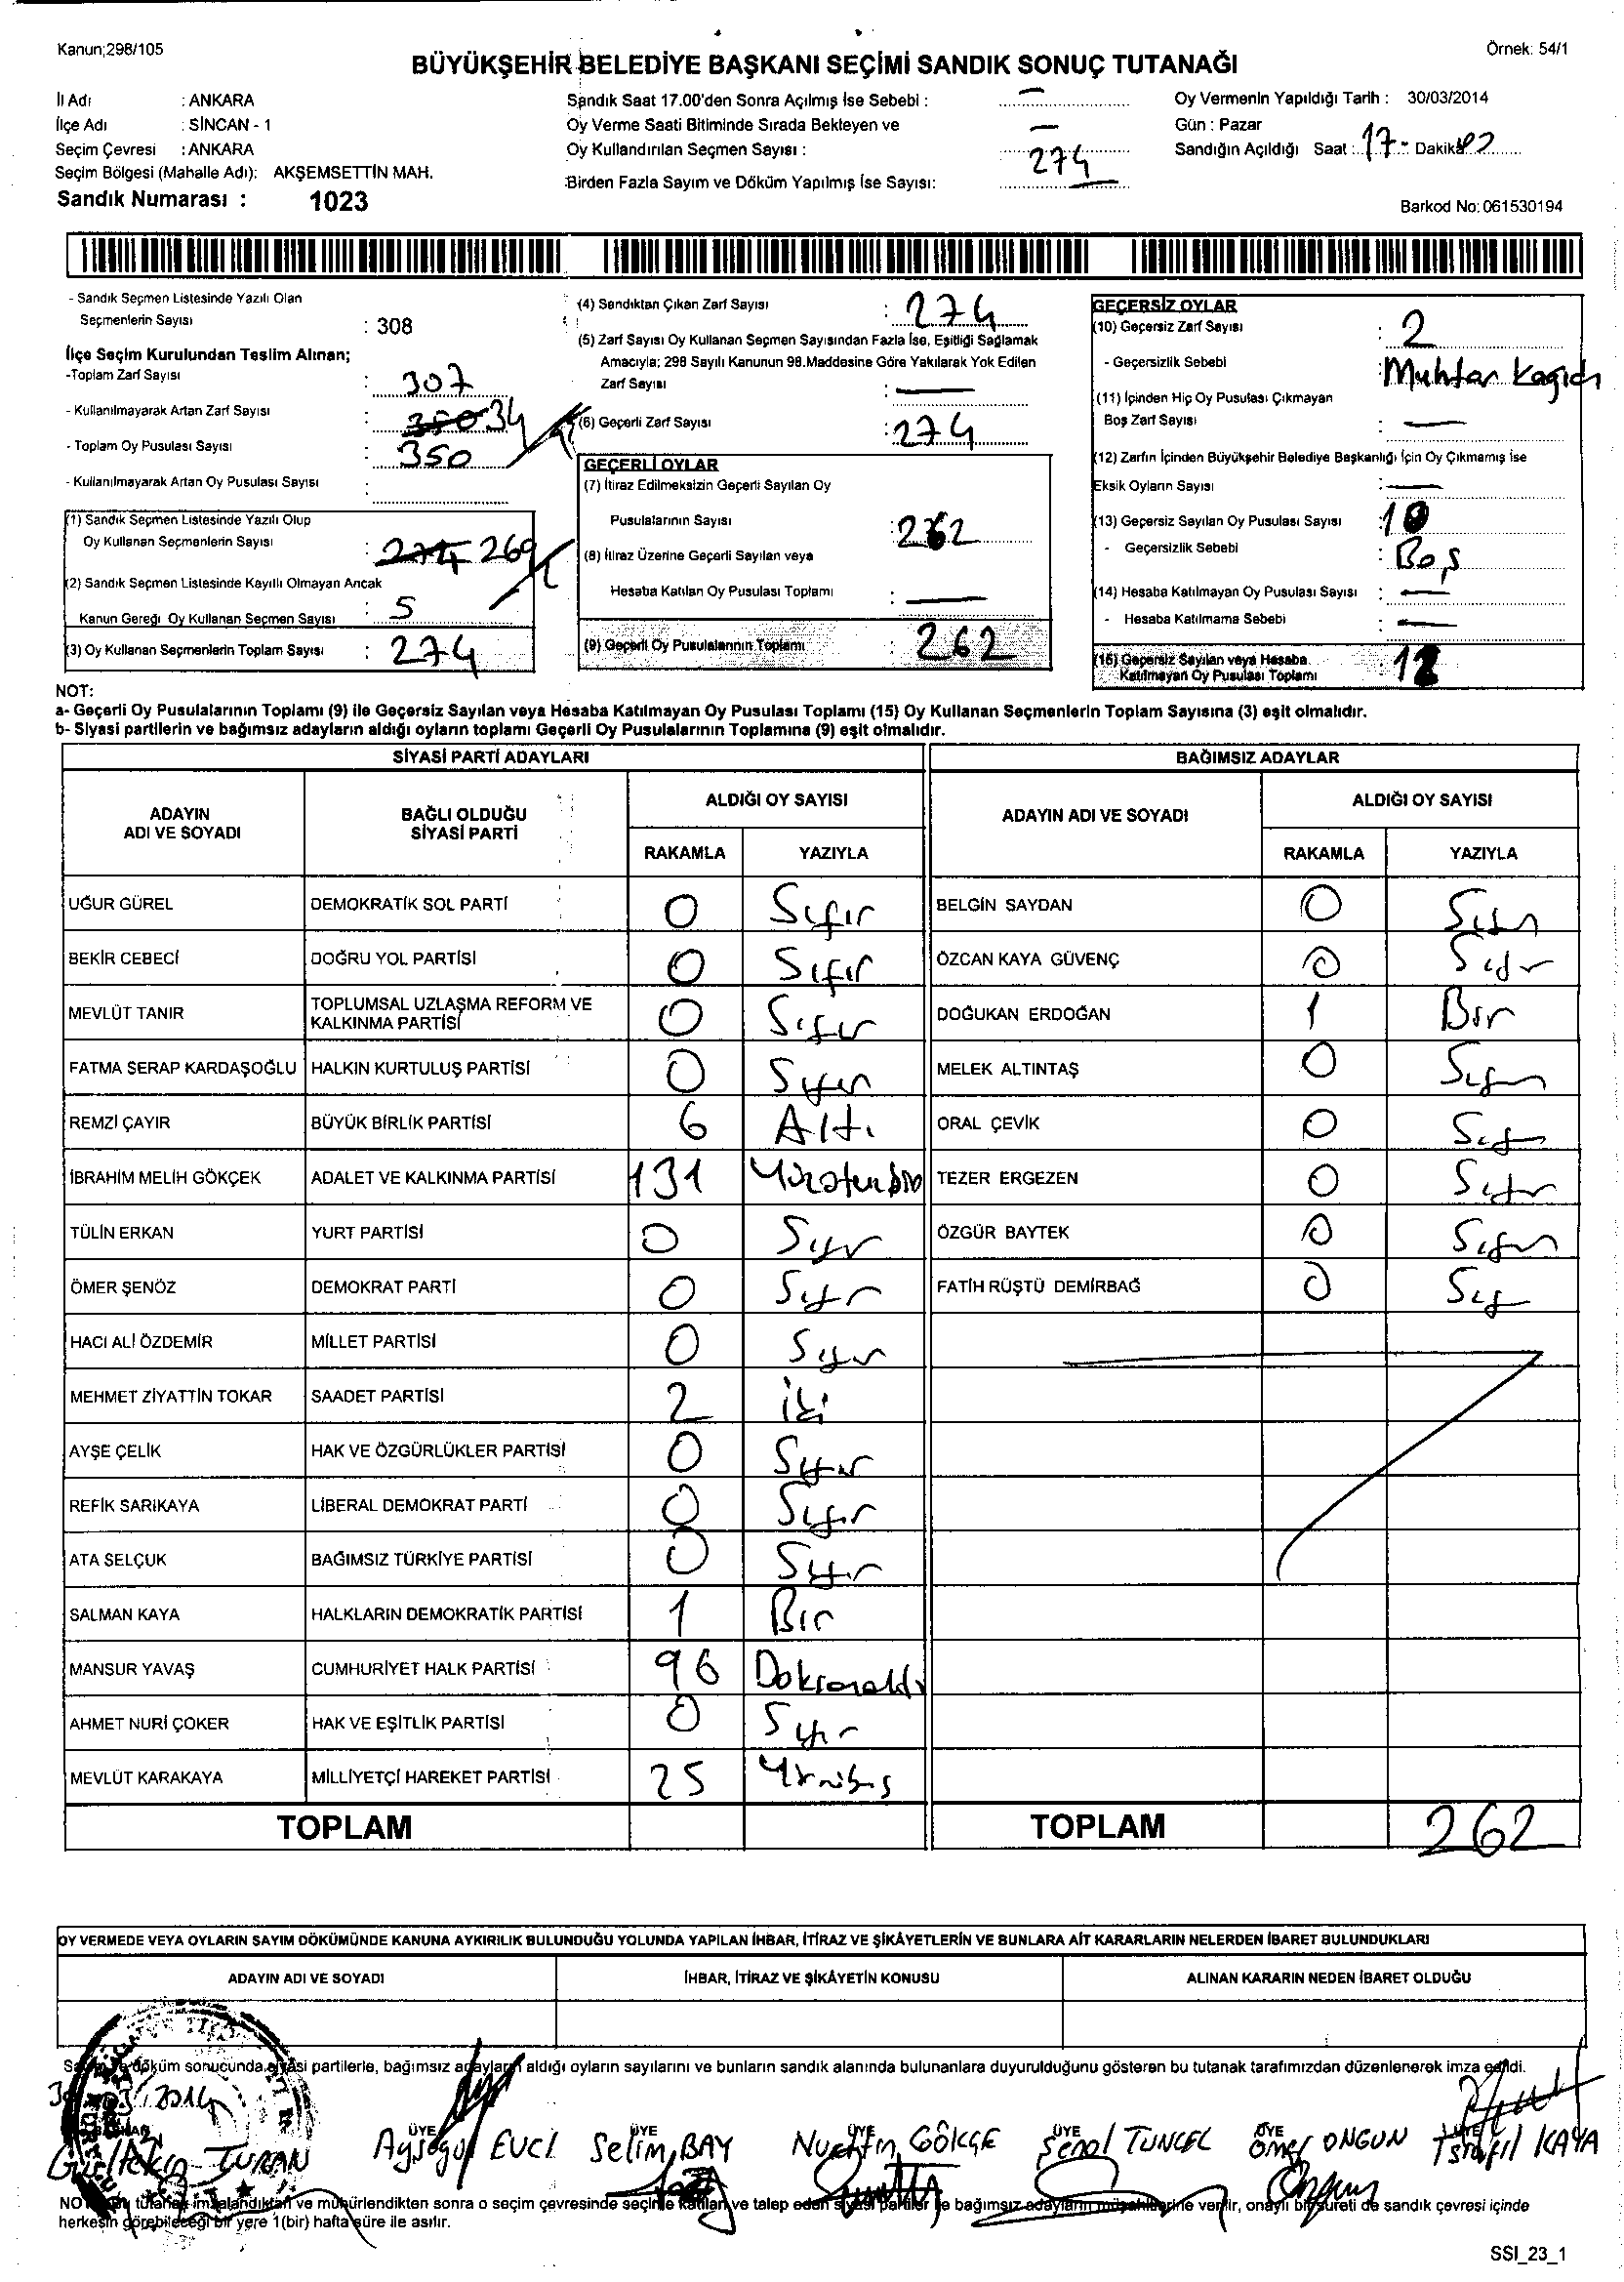 Kanun;298/105
Örnek: 54/1
BÜYÜKŞEHİR BELEDİYE BAŞKANI SEÇİMİ SANDIK SONUÇ TUTANAĞI
İl Adı : ANKARA
İlçe Adı : SİNCAN - 1
Seçim Çevresi : ANKARA
Seçim Bölgesi (Mahalle Adı): AKŞEMSETTİN MAH.
Sandık Numarası : 1023
Sandık Saat 17.00'den Sonra Açılmış İse Sebebi : —
Oy Verme Saati Bitiminde Sırada Bekleyen ve
Oy Kullandırılan Seçmen Sayısı : —
Birden Fazla Sayım ve Döküm Yapılmış İse Sayısı: 274
Oy Vermenin Yapıldığı Tarih : 30/03/2014
Gün : Pazar
Sandığın Açıldığı Saat : 17- Dakika
Barkod No: 061530194
- Sandık Seçmen Listesinde Yazılı Olan
Seçmenlerin Sayısı : 308
İlçe Seçim Kurulundan Teslim Alınan;
-Toplam Zarf Sayısı : 307
- Kullanılmayarak Artan Zarf Sayısı : 350 34
- Toplam Oy Pusulası Sayısı : 350
- Kullanılmayarak Artan Oy Pusulası Sayısı :
(1) Sandık Seçmen Listesinde Yazılı Olup
Oy Kullanan Seçmenlerin Sayısı : 274 269
(2) Sandık Seçmen Listesinde Kayıllı Olmayan Ancak
Kanun Gereği Oy Kullanan Seçmen Sayısı : 5
(3) Oy Kullanan Seçmenlerin Toplam Sayısı : 274
(4) Sandıktan Çıkan Zarf Sayısı : 274
(5) Zarf Sayısı Oy Kullanan Seçmen Sayısından Fazla İse, Eşitliği Sağlamak
Amacıyla; 298 Sayılı Kanunun 98.Maddesine Göre Yakılarak Yok Edilen
Zarf Sayısı : —
(6) Geçerli Zarf Sayısı : 274
GEÇERLİ OYLAR
(7) İtiraz Edilmeksizin Geçerli Sayılan Oy
Pusulalarının Sayısı : 262
(8) İtiraz Üzerine Geçerli Sayılan veya
Hesaba Katılan Oy Pusulası Toplamı : —
(9) Geçerli Oy Pusulalarının Toplamı : 262
GEÇERSİZ OYLAR
(10) Geçersiz Zarf Sayısı : 2
- Geçersizlik Sebebi : Muhtar Kağıdı
(11) İçinden Hiç Oy Pusulası Çıkmayan
Boş Zarf Sayısı : —
(12) Zarfın İçinden Büyükşehir Belediye Başkanlığı İçin Oy Çıkmamış İse
Eksik Oyların Sayısı : —
(13) Geçersiz Sayılan Oy Pusulası Sayısı : 10
- Geçersizlik Sebebi : Boş
(14) Hesaba Katılmayan Oy Pusulası Sayısı : —
- Hesaba Katılmama Sebebi : —
(15) Geçersiz Sayılan veya Hesaba
Katılmayan Oy Pusulası Toplamı : 12
NOT:
a- Geçerli Oy Pusulalarının Toplamı (9) ile Geçersiz Sayılan veya Hesaba Katılmayan Oy Pusulası Toplamı (15) Oy Kullanan Seçmenlerin Toplam Sayısına (3) eşit olmalıdır.
b- Siyasi partilerin ve bağımsız adayların aldığı oyların toplamı Geçerli Oy Pusulalarının Toplamına (9) eşit olmalıdır.
SİYASİ PARTİ ADAYLARI
ADAYIN ADI VE SOYADI
BAĞLI OLDUĞU SİYASİ PARTİ
ALDIĞI OY SAYISI
RAKAMLA YAZIYLA
UĞUR GÜREL DEMOKRATİK SOL PARTİ 0 Sıfır
BEKİR CEBECİ DOĞRU YOL PARTİSİ 0 Sıfır
MEVLÜT TANIR TOPLUMSAL UZLAŞMA REFORM VE KALKINMA PARTİSİ 0 Sıfır
FATMA SERAP KARDAŞOĞLU HALKIN KURTULUŞ PARTİSİ 0 Sıfır
REMZİ ÇAYIR BÜYÜK BİRLİK PARTİSİ 6 Altı
İBRAHİM MELİH GÖKÇEK ADALET VE KALKINMA PARTİSİ 131
TÜLİN ERKAN YURT PARTİSİ 0 Sıfır
ÖMER ŞENÖZ DEMOKRAT PARTİ 0 Sıfır
HACI ALİ ÖZDEMİR MİLLET PARTİSİ 0 Sıfır
MEHMET ZİYATTİN TOKAR SAADET PARTİSİ 2 iki
AYŞE ÇELİK HAK VE ÖZGÜRLÜKLER PARTİSİ 0 Sıfır
REFİK SARIKAYA LİBERAL DEMOKRAT PARTİ 0 Sıfır
ATA SELÇUK BAĞIMSIZ TÜRKİYE PARTİSİ 0 Sıfır
SALMAN KAYA HALKLARIN DEMOKRATİK PARTİSİ 1 Bir
MANSUR YAVAŞ CUMHURİYET HALK PARTİSİ 96
AHMET NURİ ÇOKER HAK VE EŞİTLİK PARTİSİ 0 Sıfır
MEVLÜT KARAKAYA MİLLİYETÇİ HAREKET PARTİSİ 25
TOPLAM
BAĞIMSIZ ADAYLAR
ADAYIN ADI VE SOYADI
ALDIĞI OY SAYISI
RAKAMLA YAZIYLA
BELGİN SAYDAN 0 Sıfır
ÖZCAN KAYA GÜVENÇ 0 Sıfır
DOĞUKAN ERDOĞAN 1 Bir
MELEK ALTINTAŞ 0 Sıfır
ORAL ÇEVİK 0 Sıfır
TEZER ERGEZEN 0 Sıfır
ÖZGÜR BAYTEK 0 Sıfır
FATİH RÜŞTÜ DEMİRBAĞ 0 Sıf
TOPLAM 262
OY VERMEDE VEYA OYLARIN SAYIM DÖKÜMÜNDE KANUNA AYKIRILIK BULUNDUĞU YOLUNDA YAPILAN İHBAR, İTİRAZ VE ŞİKÂYETLERİN VE BUNLARA AİT KARARLARIN NELERDEN İBARET BULUNDUKLARI
ADAYIN ADI VE SOYADI
İHBAR, İTİRAZ VE ŞİKÂYETİN KONUSU
ALINAN KARARIN NEDEN İBARET OLDUĞU
Sayım ve döküm sonucunda siyasi partilerle, bağımsız adayların aldığı oyların sayılarını ve bunların sandık alanında bulunanlara duyurulduğunu gösteren bu tutanak tarafımızdan düzenlenerek imza edildi.
2014
ÜYE ÜYE ÜYE ÜYE ÜYE
TURAN Ayşegül EVCİ Selim BAY Nurettin GÖKÇE Şenol TUNCEL Ömer ONGUN İsrafil KAYA
NOT: Bu tutanak imzalandıktan ve mühürlendikten sonra o seçim çevresinde seçime katılan ve talep eden siyasi partiler ile bağımsız adayların müşahitlerine verilir, onaylı bir sureti de sandık çevresi içinde
herkesin görebileceği bir yere 1(bir) hafta süre ile asılır.
SSI_23_1